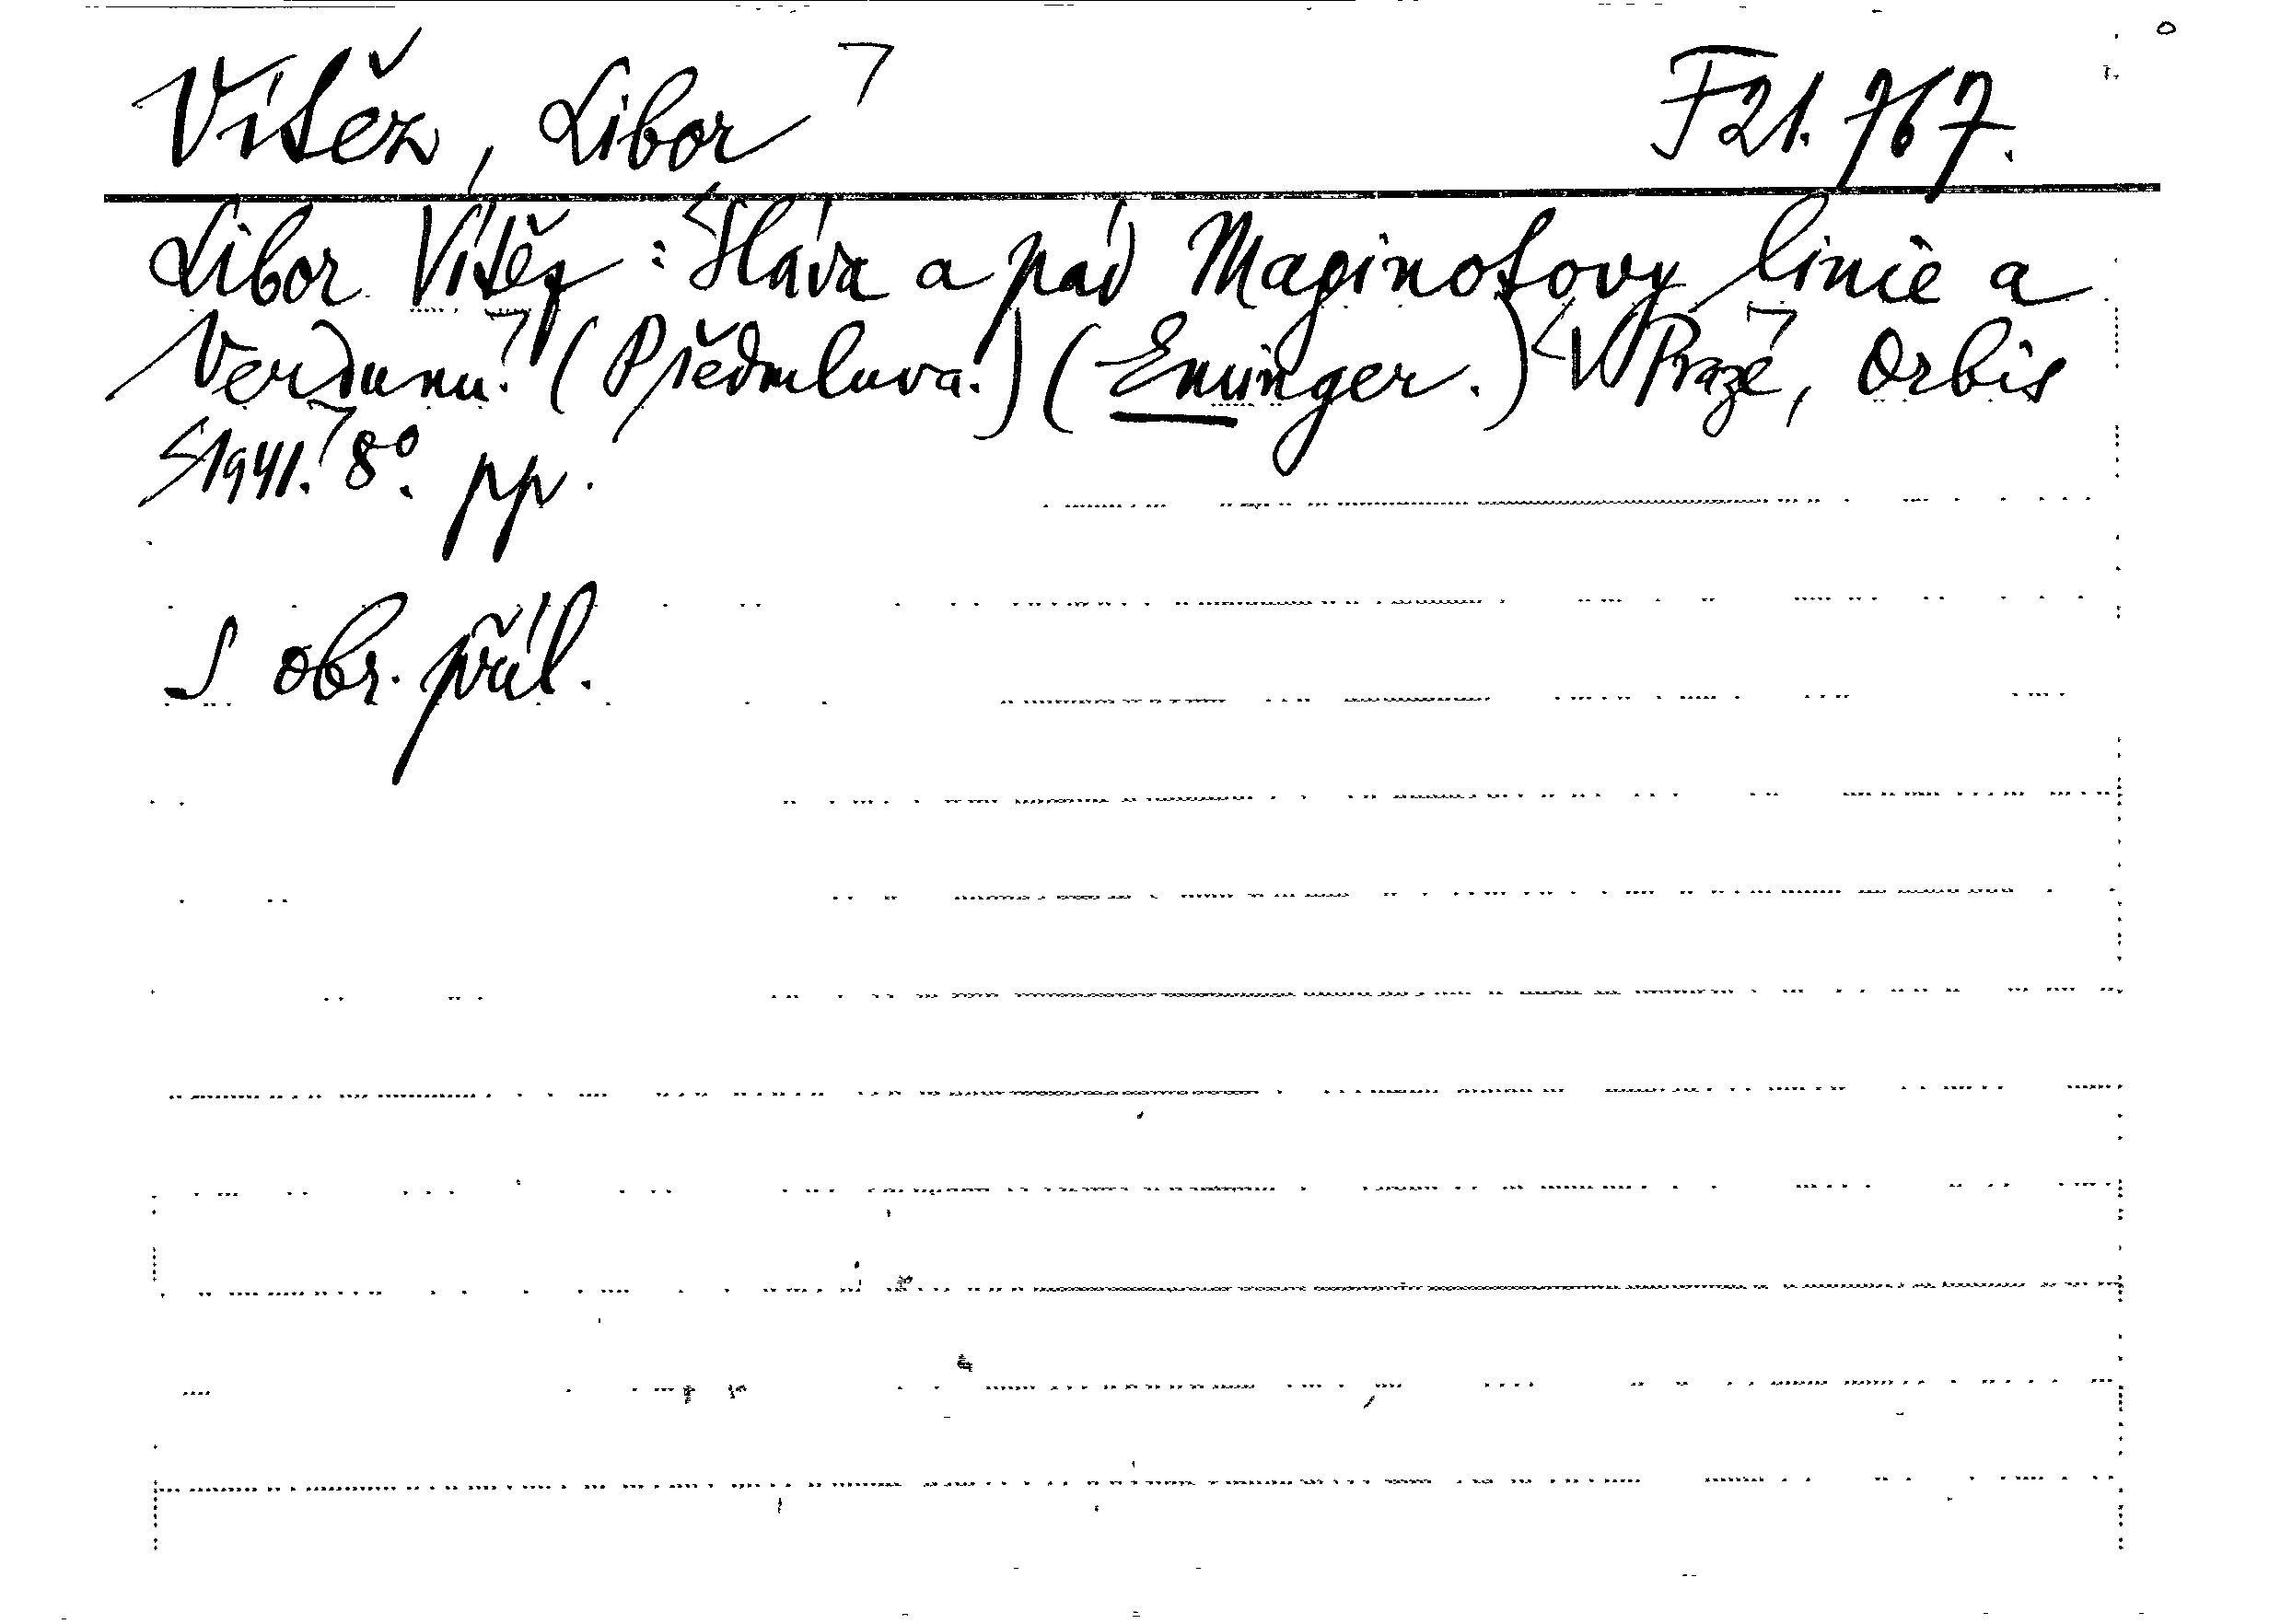 Vítěz, Libor
F 21.767.
Libor Vítěz: Sláva a pád Maginotovy linie a
Verdunu. (Předmluva.) (Eminger.) V Praze, Orbis
1941. 8°. pp.
S obr. příl.